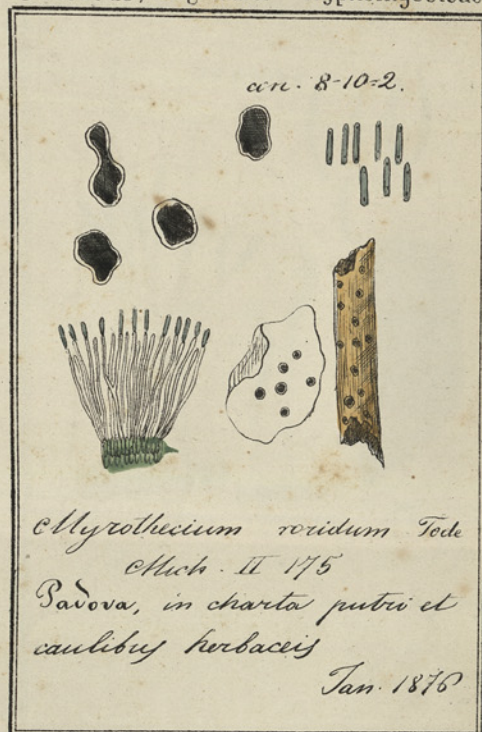 con. 8-10=2.
Myrothecium roridum Tode
Mich. II 175
Padova, in charta putri et
caulibus herbaceis
Jan. 1876